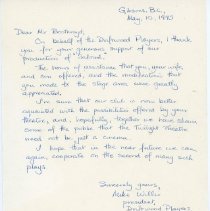 Gibsons, B.C.,
May 10, 1983
Dear Mr. Boothroyd,
On behalf of the Driftwood Players, I thank
you for your generous support of our
production of "Salvend".
The hours of assistance that you, your wife,
and son offered, and the modification that
you made to the stage area were greatly
appreciated.
I'm sure that our club is now better
aquainted with the possibilities offered by your
theatre, and, hopefully, together we have shown
some of the public that the Twilight Theatre
need not be just a cinema.
I hope that in the near future we can
again, cooperate on the second of many such
plays.
Sincerely yours,
Mike Willis
president,
Driftwood Players